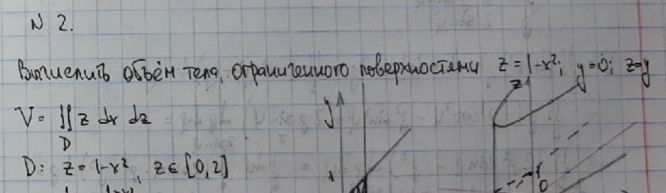 N 2.
Вычислить объём тела, ограниченного поверхностями z = 1-x²; y=0; z=y
V = ∬ z dx dz
D
D: z = 1-x², z ∈ [0,2]
y
z
0